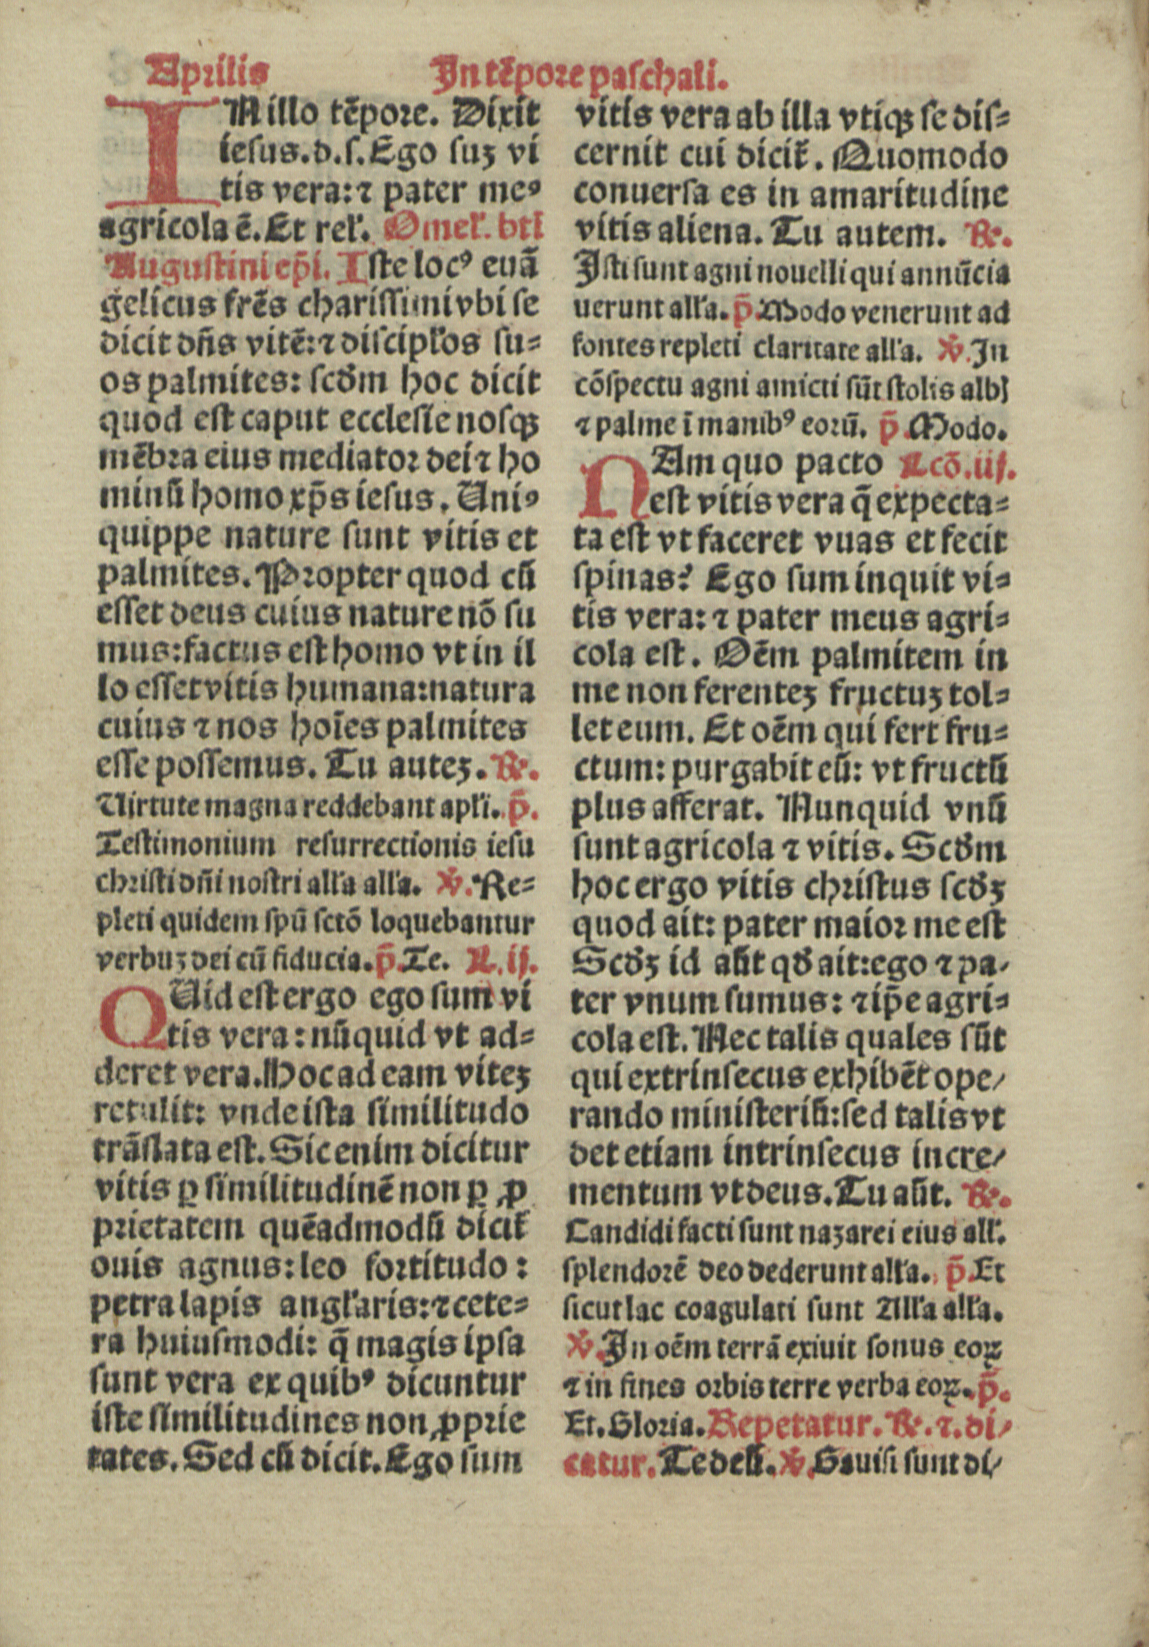 Aprilis
In tẽpore paschali.
INillo tẽpore. Dixit
iesus.d.s.Ego suꝫ vi
tis vera:⁊ pater meꝰ
agricola ẽ.Et relꝭ. Omelꝭ. btĩ
Augustini ep̃i. Iste locꝰ euã
gelicus fr̃es charissimi vbi se
dicit dñs vitẽ:⁊ discipl̃os su⸗
os palmites: scd̃m hoc dicit
quod est caput ecclesie nosqꝫ
mẽbra eius mediator dei ⁊ ho
minũ homo xp̃s iesus. Uniꝰ
quippe nature sunt vitis et
palmites. Propter quod cũ
esset deus cuius nature nõ su
mus:factus est homo vt in il
lo esset vitis humana:natura
cuius ⁊ nos hoĩes palmites
esse possemus. Tu auteꝫ. ℞.
Uirtute magna reddebant apl̃i. p̃.
Testimonium resurrectionis iesu
christi dñi nostri all'a all'a. ℣. Re⸗
pleti quidem spũ sctõ loquebantur
verbuꝫ dei cũ fiducia. p̃. Te. L. ij.
QUid est ergo ego sum vi
tis vera: nũquid vt ad⸗
deret vera. Hoc ad eam viteꝫ
retulit: vnde ista similitudo
trãslata est. Sic enim dicitur
vitis ꝑ similitudinẽ non ꝑ ꝓ
prietatem quẽadmodũ dicit̃
ouis agnus: leo fortitudo:
petra lapis angl'aris:⁊ cete⸗
ra huiusmodi: q̃ magis ipsa
sunt vera ex quibꝰ dicuntur
iste similitudines non ꝓprie
tates. Sed cũ dicit. Ego sum
vitis vera ab illa vtiqꝫ se dis⸗
cernit cui dicit̃. Quomodo
conuersa es in amaritudine
vitis aliena. Tu autem. ℞.
Isti sunt agni nouelli qui annũcia
uerunt all'a. p̃. Modo venerunt ad
fontes repleti claritate all'a. ℣. In
cõspectu agni amicti sũt stolis albĩ
⁊ palme ĩ manibꝰ eorũ. p̃. Modo.
NAm quo pacto Lcõ. iij.
est vitis vera q̃ expecta⸗
ta est vt faceret vuas et fecit
spinas? Ego sum inquit vi⸗
tis vera: ⁊ pater meus agri⸗
cola est. Oẽm palmitem in
me non ferenteꝫ fructuꝫ tol⸗
let eum. Et oẽm qui fert fru⸗
ctum: purgabit eũ: vt fructũ
plus afferat. Nunquid vnũ
sunt agricola ⁊ vitis. Scd̃m
hoc ergo vitis christus scd̃ꝫ
quod ait: pater maior me est
Scd̃ꝫ id aũt qd̃ ait:ego ⁊ pa⸗
ter vnum sumus: ⁊ ip̃e agri⸗
cola est. Nec talis quales sũt
qui extrinsecus exhibẽt ope/
rando ministeriũ:sed talis vt
det etiam intrinsecus incre/
mentum vt deus. Tu aũt. ℞.
Candidi facti sunt nazarei eius all'.
splendorẽ deo dederunt all'a. p̃. Et
sicut lac coagulati sunt All'a all'a.
℣. In oẽm terrã exiuit sonus eoꝝ
⁊ in fines orbis terre verba eoꝝ. p̃.
Et. Gloria. Repetatur. ℞. ⁊. di/
catur. Te deũ. ℣. Gauisi sunt di/